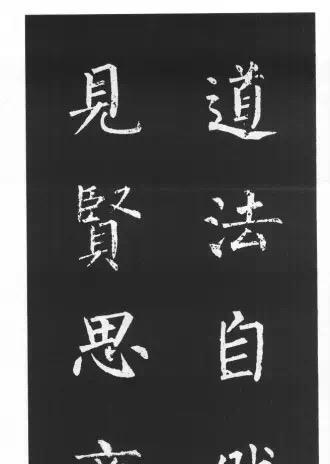 道法自
見賢思